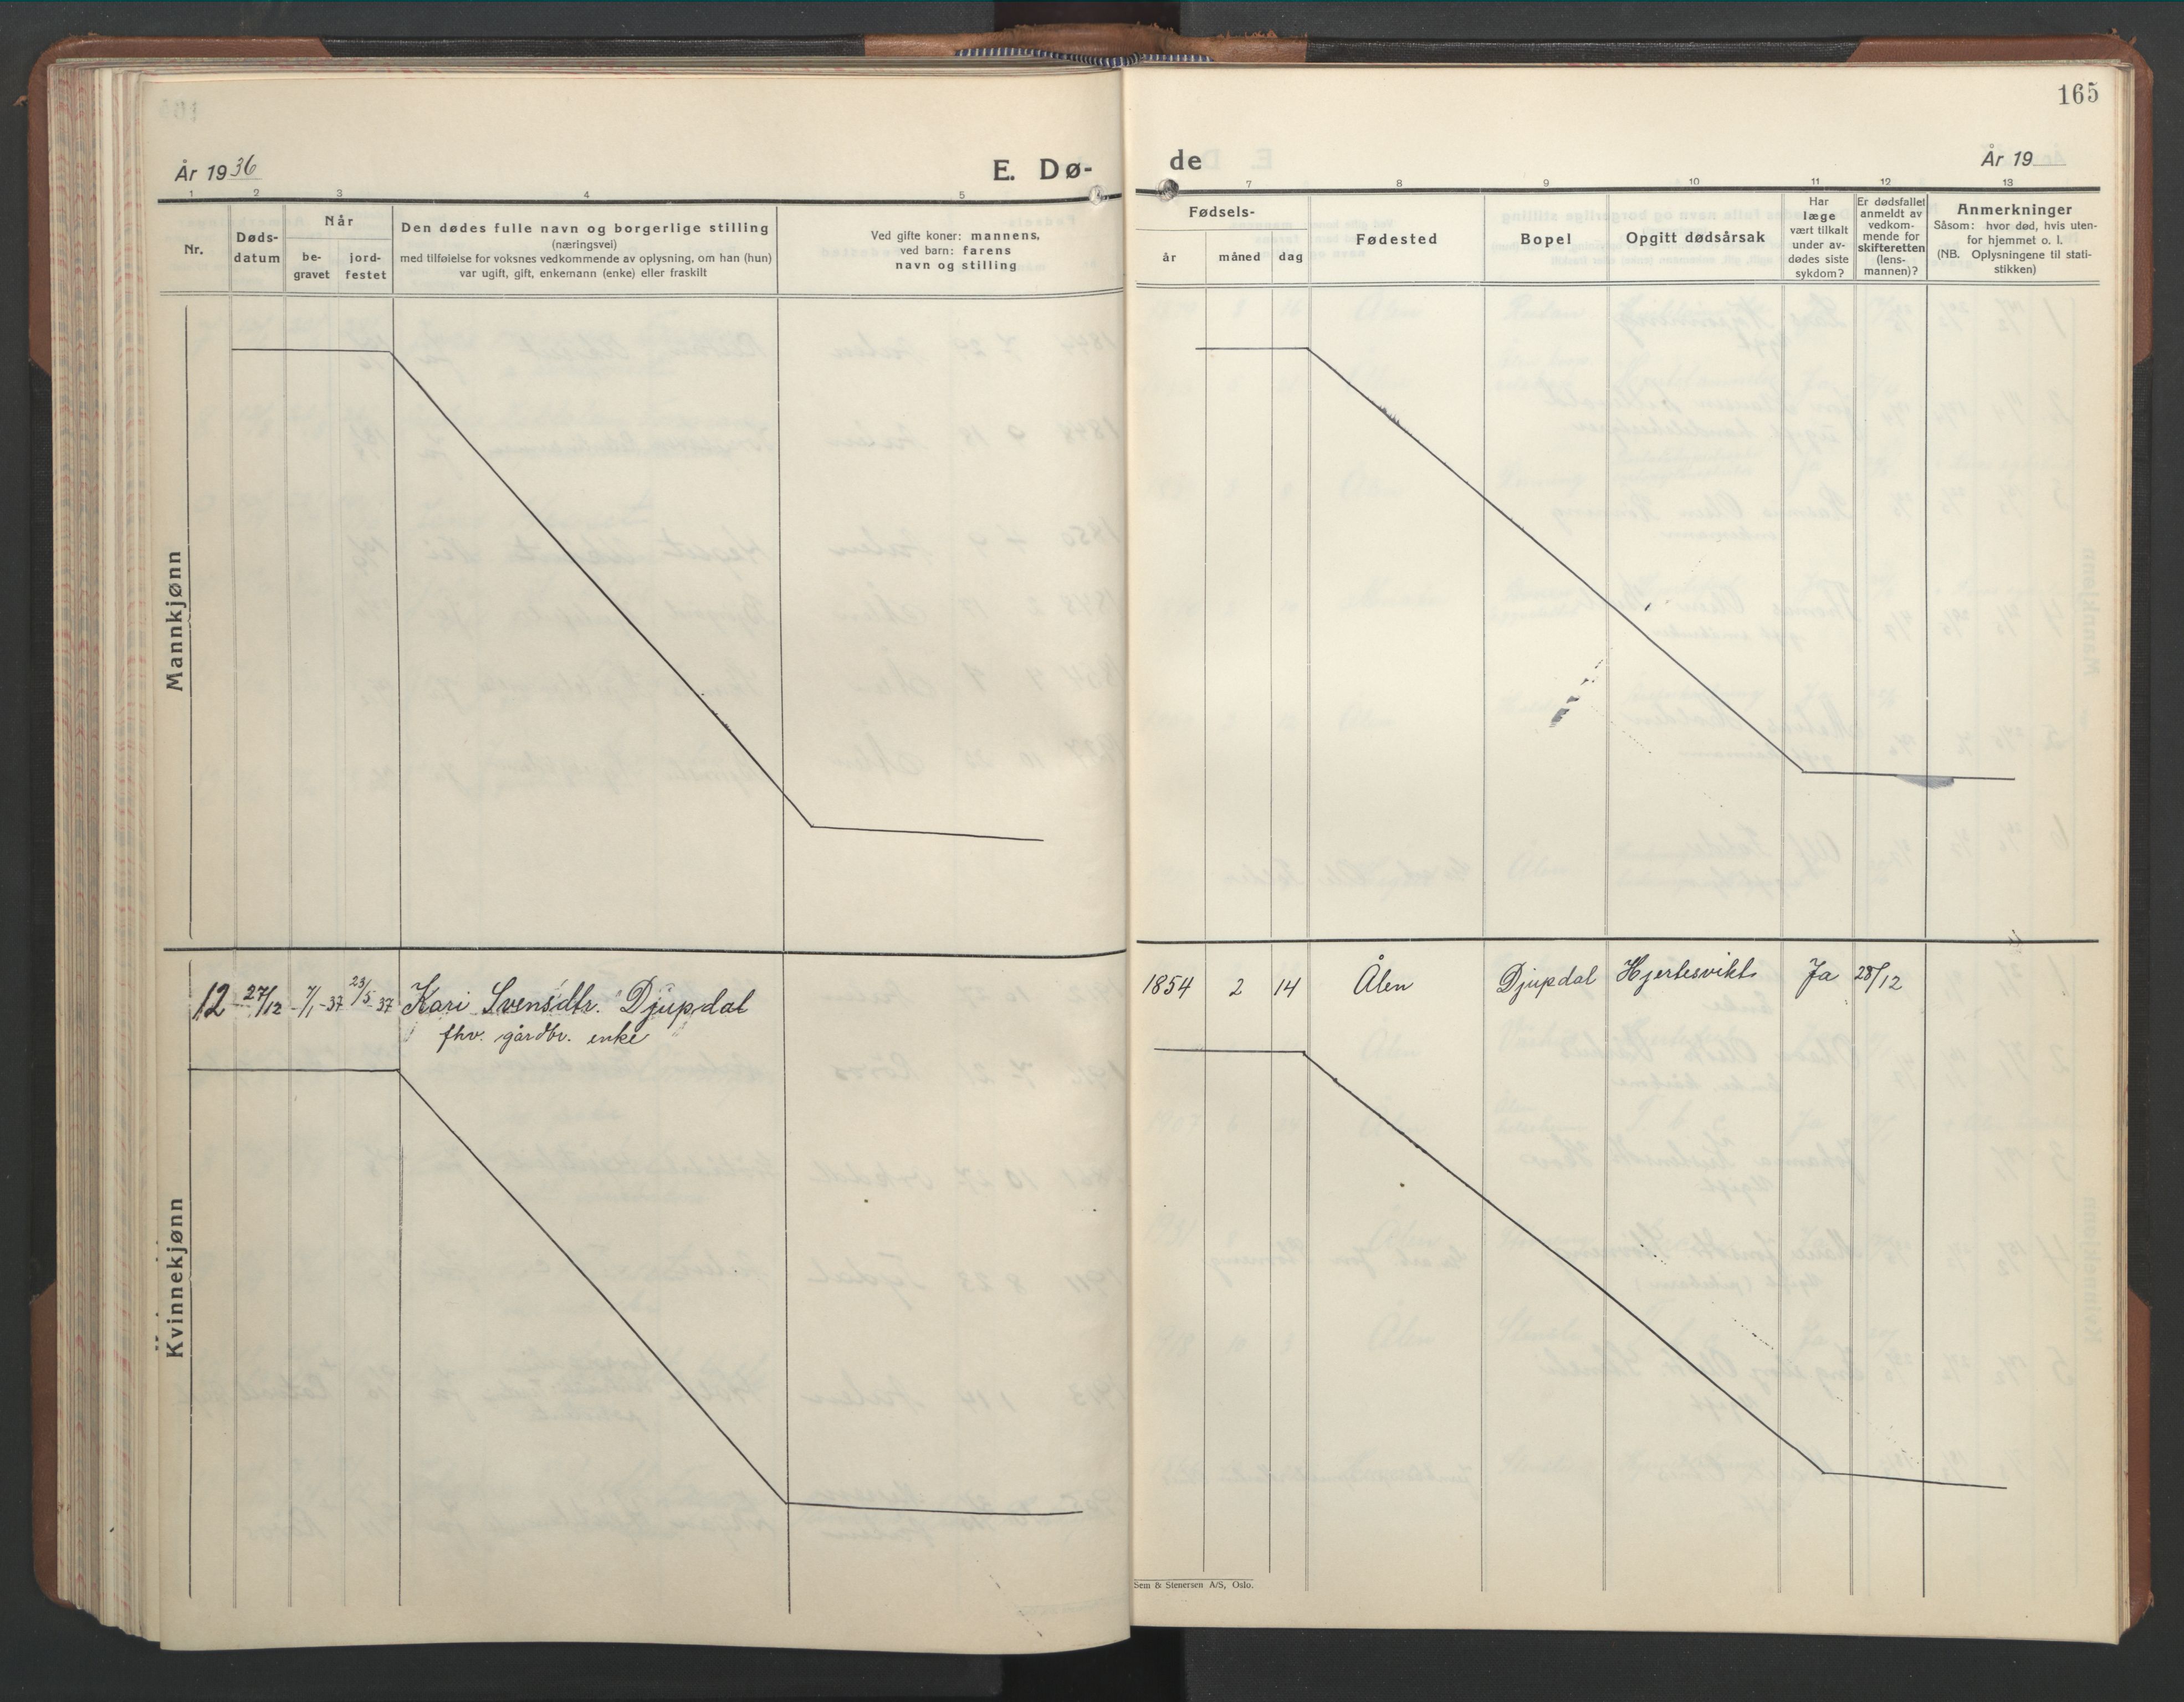 165
År 1936
E. Dø-
de
År 19
1 2 3 4 5 7 8 9 10 11 12 13
Nr.
Døds-
datum
Når
be-
gravet
jord-
festet
Den dødes fulle navn og borgerlige stilling
(næringsvei)
med tilføielse for voksnes vedkommende av oplysning, om han (hun)
var ugift, gift, enkemann (enke) eller fraskilt
Ved gifte koner: mannens,
ved barn: farens
navn og stilling
Fødsels-
år måned dag
Fødested
Bopel
Opgitt dødsårsak
Har
læge
vært tilkalt
under av-
dødes siste
sykdom?
Er dødsfallet
anmeldt av
vedkom-
mende for
skifteretten
(lens-
mannen)?
Anmerkninger
Såsom: hvor død, hvis uten-
for hjemmet o. l.
(NB. Oplysningene til stati-
stikken)
Mannkjønn
Kvinnekjønn
12 27/12 7/1-37 23/5-37 Kari Svensdtr. Djupdal 1854 2 14 Ålen Djupdal Hjertesvikt Ja 28/12
fhv. gårdbr. enke
Sem & Stenersen A/S, Oslo.